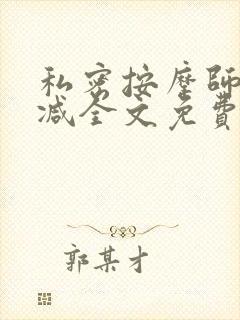 私密按摩師
减全文免費
郭某才